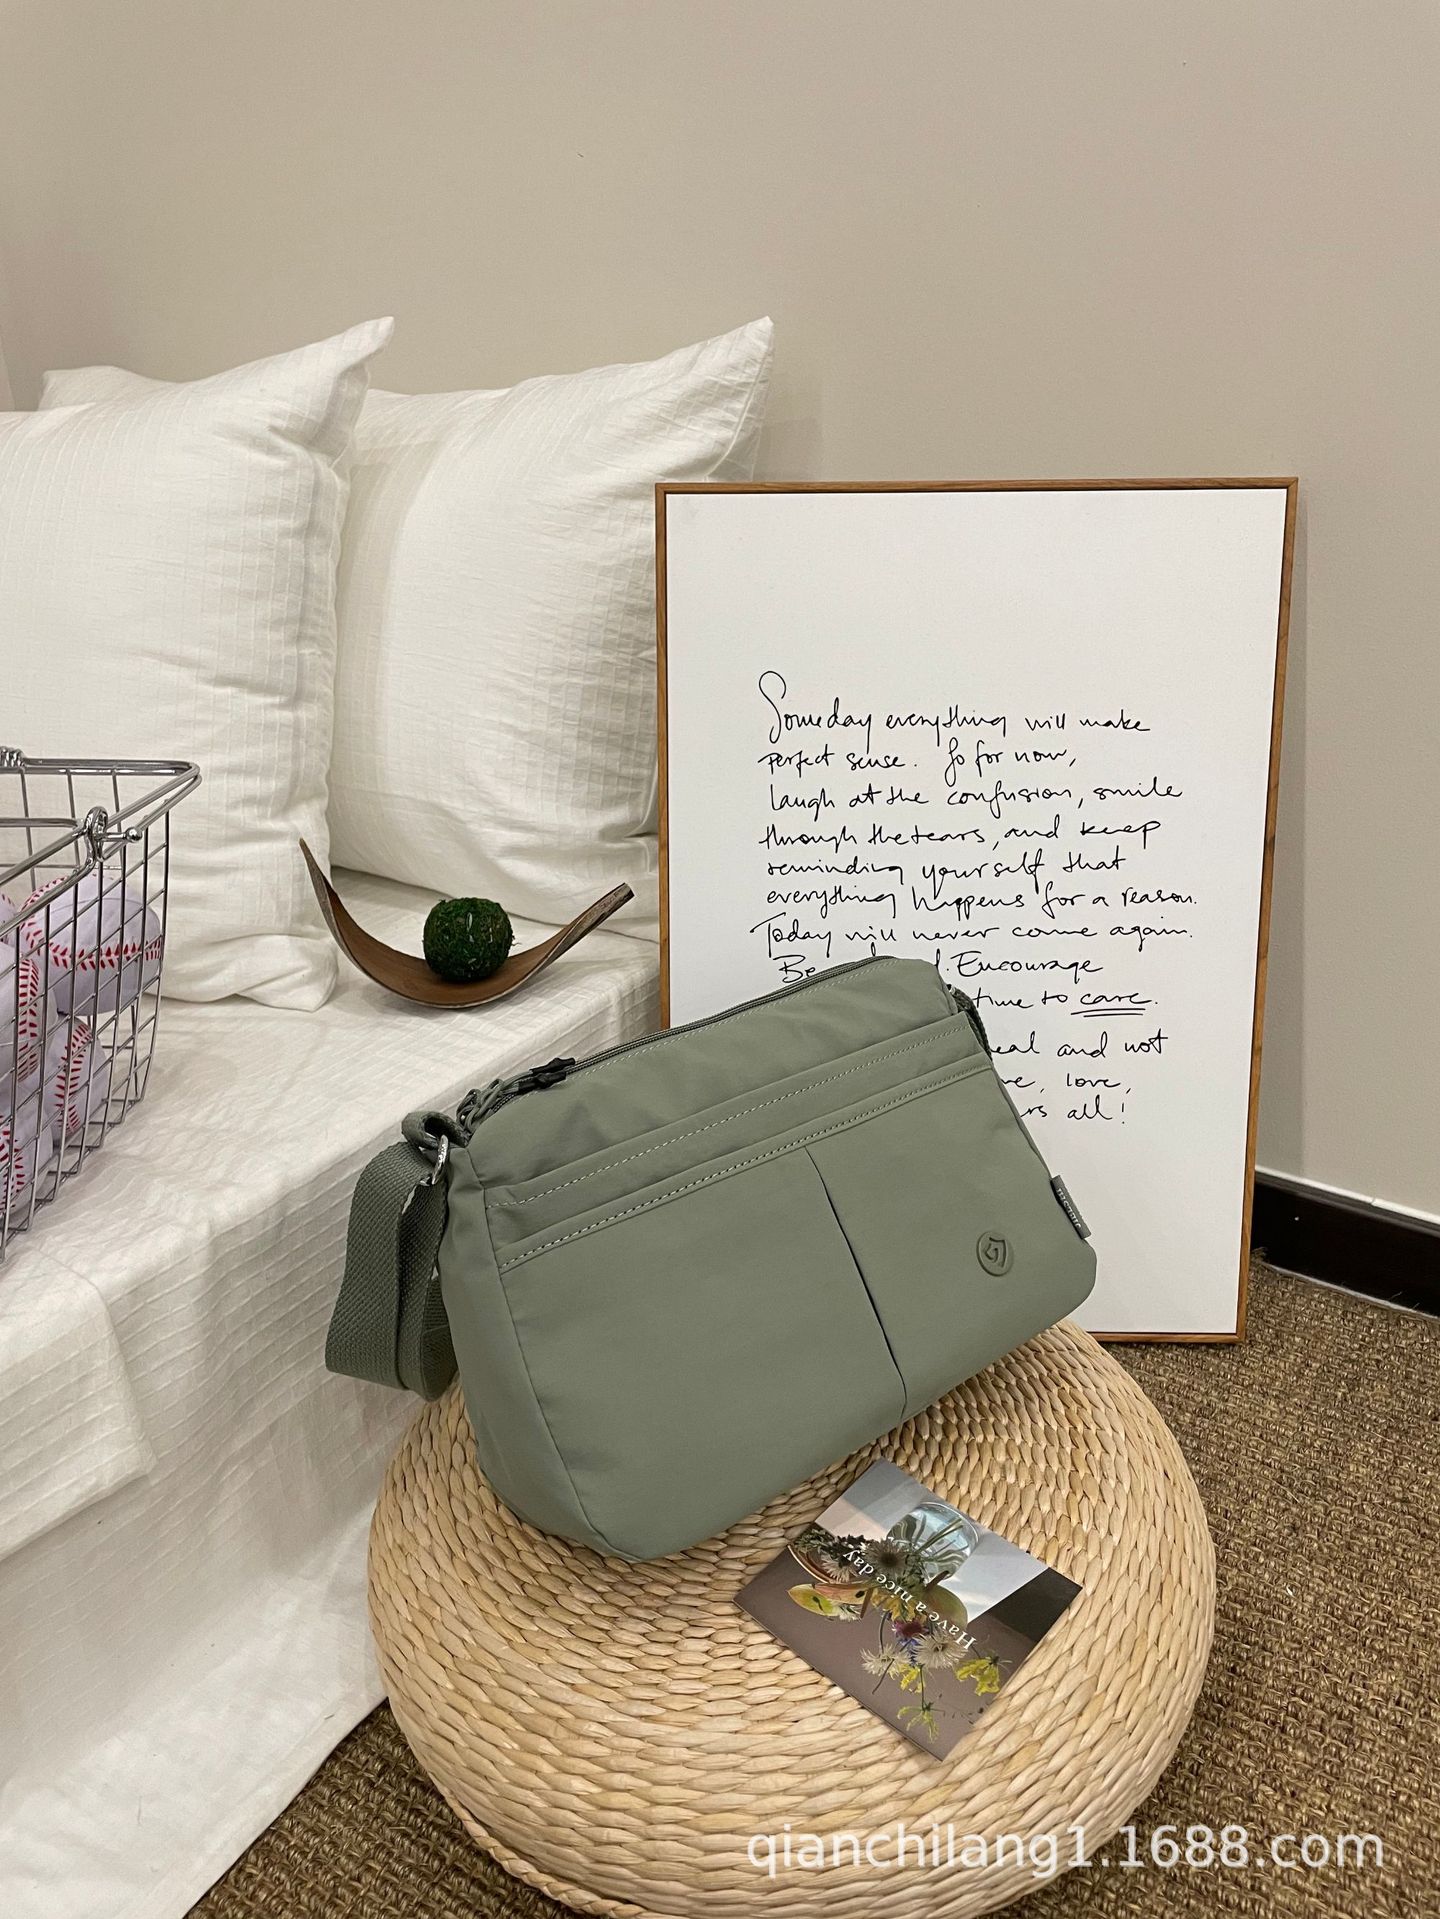 Someday everything will make
perfect sense. So for now,
laugh at the confusion, smile
through the tears, and keep
reminding yourself that
everything happens for a reason.
Today will never come again.
Be d. Encourage
time to care.
eal and not
e, love,
rs all!
Have a nice day
qianchilang1.1688.com